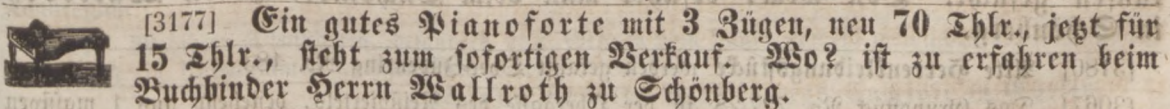 [3177] Ein gutes Pianoforte mit 3 Zügen, neu 70 Thlr., jetzt für
15 Thlr., steht zum sofortigen Verkauf. Wo? ist zu erfahren beim
Buchbinder Herrn Wallroth zu Schönberg.